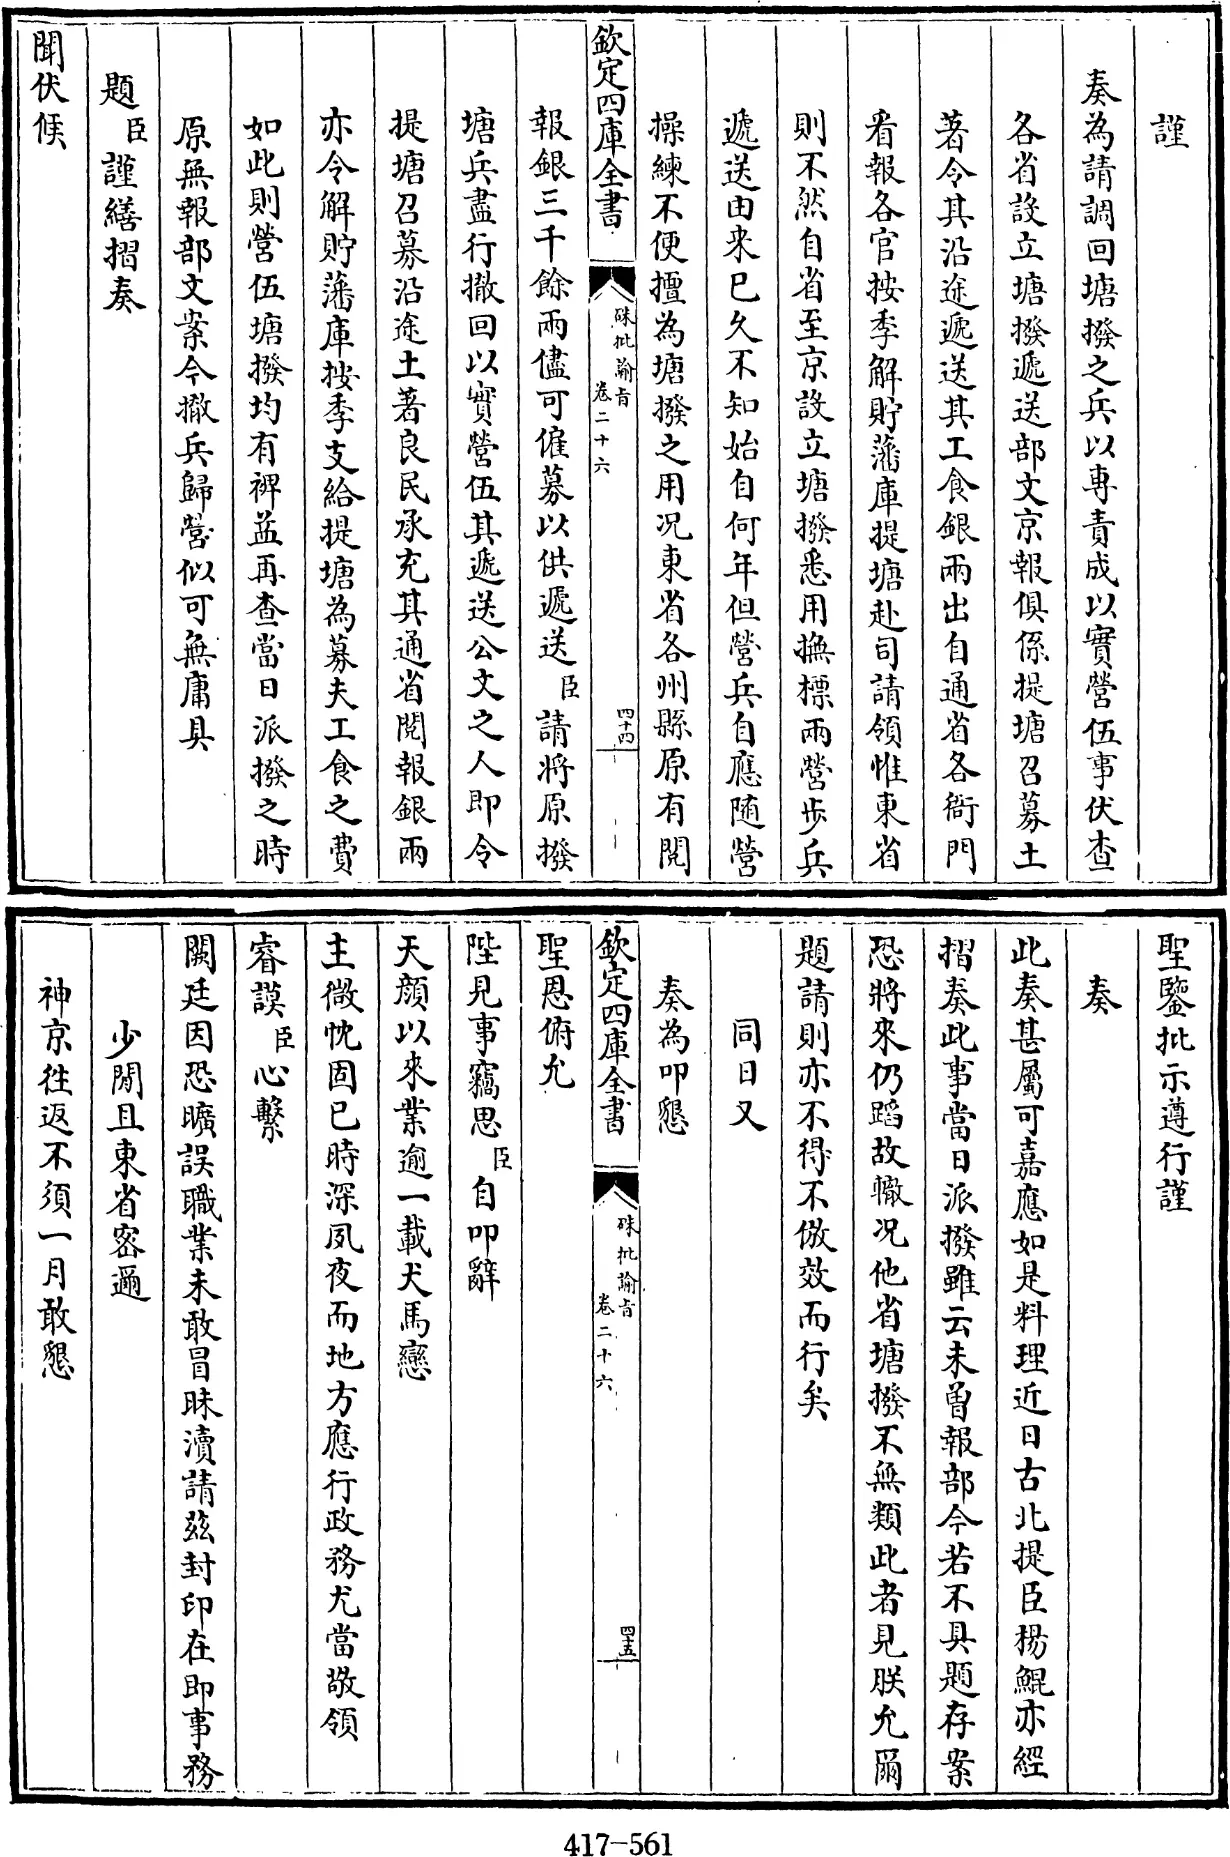 謹
奏為請調回塘撥之兵以專責成以實營伍事伏查
各省設立塘撥遞送部文京報俱係提塘召募土
著令其沿途遞送其工食銀兩出自通省各衙門
看報各官按季解貯藩庫提塘赴司請領惟東省
則不然自省至京設立塘撥悉用撫標兩營步兵
遞送由來已久不知始自何年但營兵自應随營
操練不便擅為塘撥之用况東省各州縣原有閱
欽定四庫全書
硃批諭旨
卷二十六
四十四
報銀三千餘兩儘可僱募以供遞送臣請將原撥
塘兵盡行撤回以實營伍其遞送公文之人即令
提塘召募沿途土著良民承充其通省閱報銀兩
亦令解貯藩庫按季支給提塘為募夫工食之費
如此則營伍塘撥均有裨益再查當日派撥之時
原無報部文案今撤兵歸營似可無庸具
題臣謹繕摺奏
聞伏候
聖鑒批示遵行謹
奏
此奏甚屬可嘉應如是料理近日古北提臣楊鯤亦經
摺奏此事當日派撥雖云未曽報部今若不具題存案
恐將來仍蹈故轍况他省塘撥不無類此者見朕允爾
題請則亦不得不倣效而行矣
同日又
奏為叩懇
欽定四庫全書
硃批諭旨
卷二十六
四十五
聖恩俯允
陛見事竊思臣自叩辭
天顔以來業逾一載犬馬戀
主微忱固已時深夙夜而地方應行政務尤當敬領
睿謨臣心繫
闕廷因恐曠誤職業未敢冒昧瀆請茲封印在即事務
少閒且東省密邇
神京往返不須一月敢懇
417-561